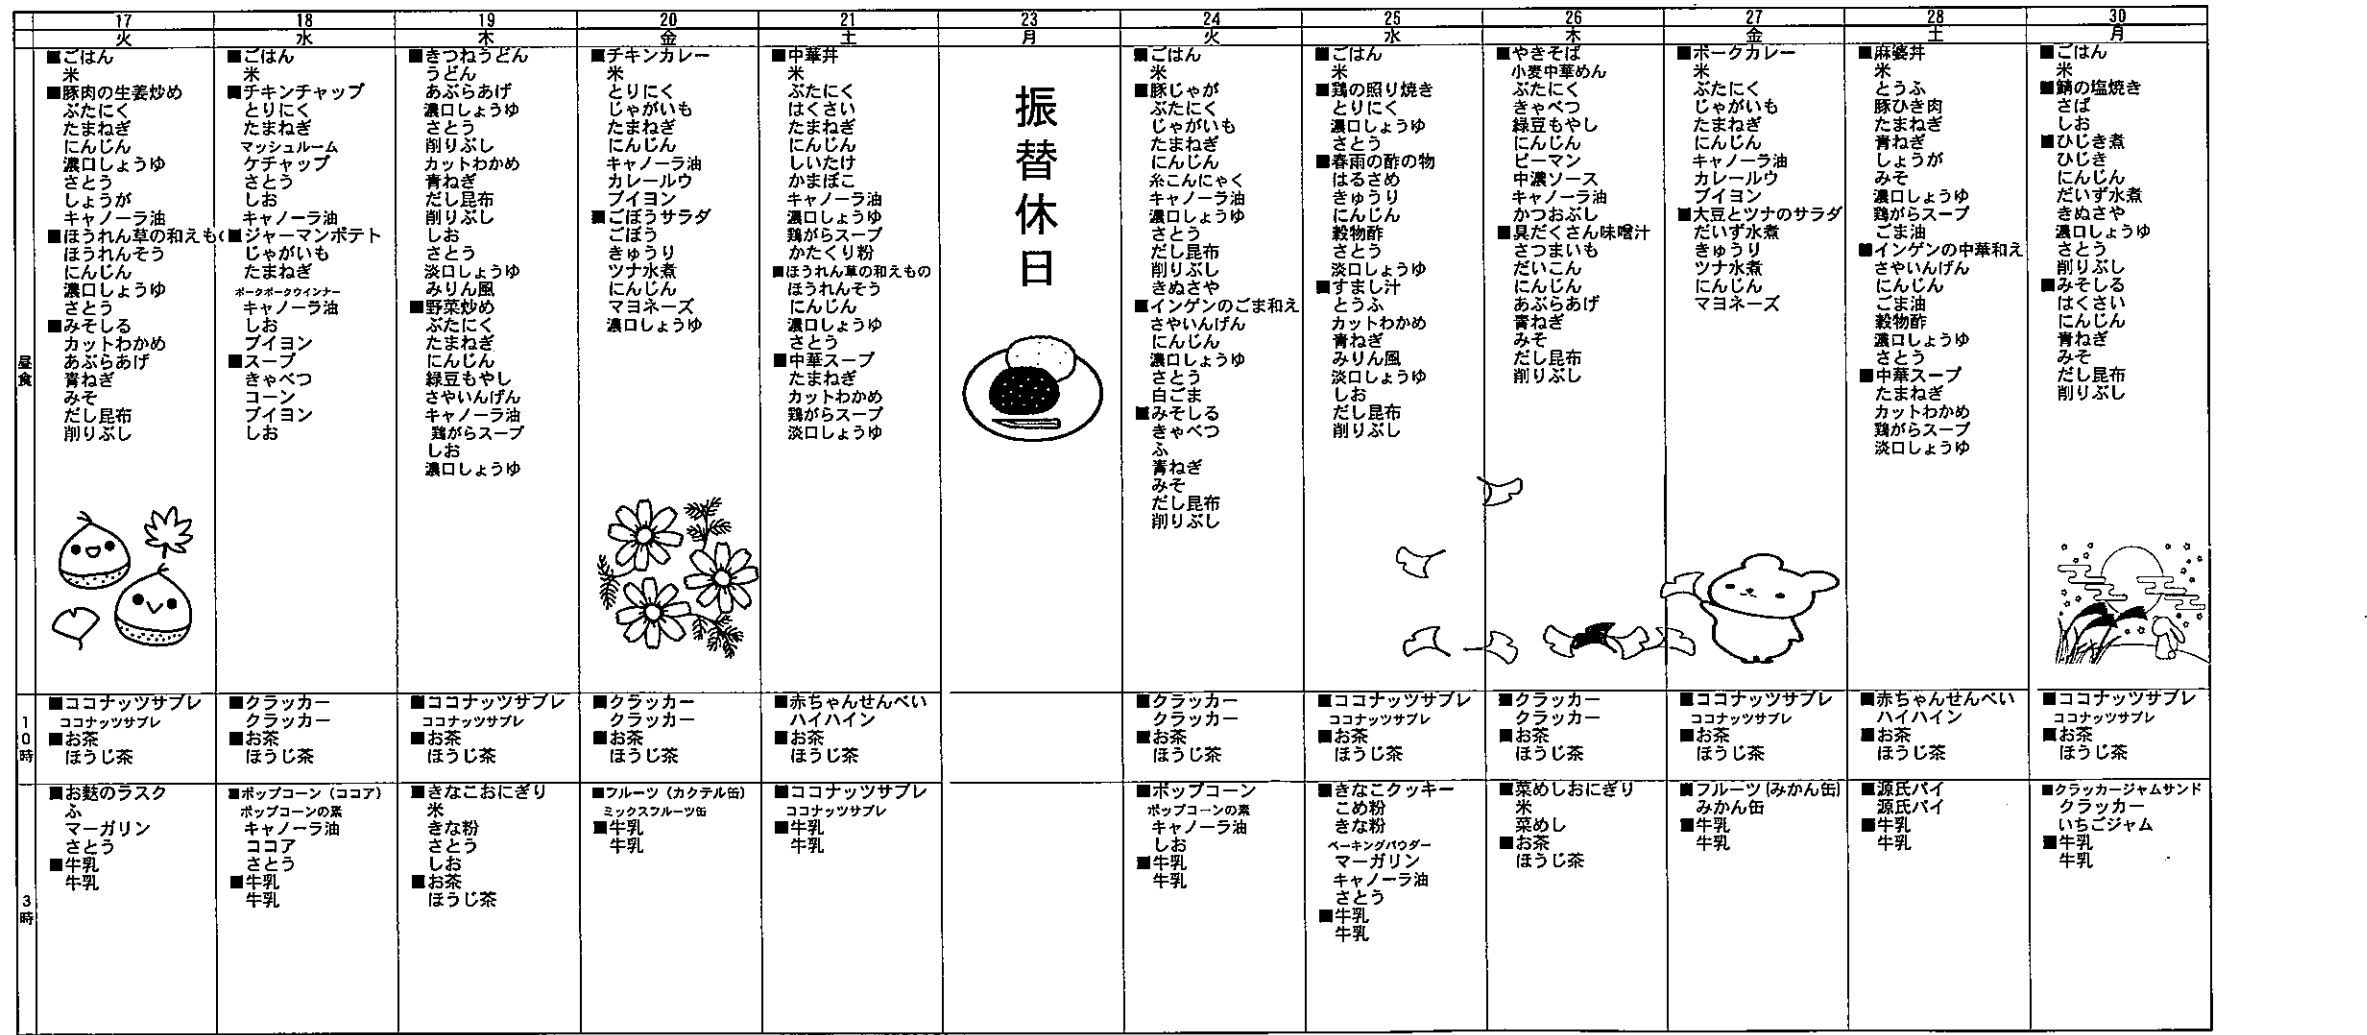 17
火
18
水
19
木
20
金
21
土
23
月
24
火
25
水
26
木
27
金
28
土
30
月
昼食
■ごはん
米
■豚肉の生姜炒め
ぶたにく
たまねぎ
にんじん
濃口しょうゆ
さとう
しょうが
キャノーラ油
■ほうれん草の和えも
ほうれんそう
にんじん
濃口しょうゆ
さとう
■みそしる
カットわかめ
あぶらあげ
青ねぎ
みそ
だし昆布
削りぶし
■ごはん
米
■チキンチャップ
とりにく
たまねぎ
マッシュルーム
ケチャップ
さとう
しお
キャノーラ油
■ジャーマンポテト
じゃがいも
たまねぎ
ポークポークウインナー
キャノーラ油
しお
ブイヨン
■スープ
きゃべつ
コーン
ブイヨン
しお
■きつねうどん
うどん
あぶらあげ
濃口しょうゆ
さとう
削りぶし
カットわかめ
青ねぎ
だし昆布
削りぶし
しお
さとう
淡口しょうゆ
みりん風
■野菜炒め
ぶたにく
たまねぎ
にんじん
緑豆もやし
さやいんげん
キャノーラ油
鶏がらスープ
しお
濃口しょうゆ
■チキンカレー
米
とりにく
じゃがいも
たまねぎ
にんじん
キャノーラ油
カレールウ
ブイヨン
■ごぼうサラダ
ごぼう
きゅうり
ツナ水煮
にんじん
マヨネーズ
濃口しょうゆ
■中華丼
米
ぶたにく
はくさい
たまねぎ
にんじん
しいたけ
かまぼこ
キャノーラ油
濃口しょうゆ
鶏がらスープ
かたくり粉
■ほうれん草の和えもの
ほうれんそう
にんじん
濃口しょうゆ
さとう
■中華スープ
たまねぎ
カットわかめ
鶏がらスープ
淡口しょうゆ
振替休日
■ごはん
米
■豚じゃが
ぶたにく
じゃがいも
たまねぎ
にんじん
糸こんにゃく
キャノーラ油
濃口しょうゆ
さとう
だし昆布
削りぶし
きぬさや
■インゲンのごま和え
さやいんげん
にんじん
濃口しょうゆ
さとう
白ごま
■みそしる
きゃべつ
ふ
青ねぎ
みそ
だし昆布
削りぶし
■ごはん
米
■鶏の照り焼き
とりにく
濃口しょうゆ
さとう
■春雨の酢の物
はるさめ
きゅうり
にんじん
穀物酢
さとう
淡口しょうゆ
■すまし汁
とうふ
カットわかめ
青ねぎ
みりん風
淡口しょうゆ
しお
だし昆布
削りぶし
■やきそば
小麦中華めん
ぶたにく
きゃべつ
緑豆もやし
にんじん
ピーマン
中濃ソース
キャノーラ油
かつおぶし
■具だくさん味噌汁
さつまいも
だいこん
にんじん
あぶらあげ
青ねぎ
みそ
だし昆布
削りぶし
■ポークカレー
米
ぶたにく
じゃがいも
たまねぎ
にんじん
キャノーラ油
カレールウ
ブイヨン
■大豆とツナのサラダ
だいず水煮
きゅうり
ツナ水煮
にんじん
マヨネーズ
■麻婆丼
米
とうふ
豚ひき肉
たまねぎ
青ねぎ
しょうが
みそ
濃口しょうゆ
鶏がらスープ
ごま油
■インゲンの中華和え
さやいんげん
にんじん
ごま油
穀物酢
濃口しょうゆ
さとう
■中華スープ
たまねぎ
カットわかめ
鶏がらスープ
淡口しょうゆ
■ごはん
米
■鯖の塩焼き
さば
しお
■ひじき煮
ひじき
にんじん
だいず水煮
きぬさや
濃口しょうゆ
さとう
削りぶし
■みそしる
はくさい
にんじん
青ねぎ
みそ
だし昆布
削りぶし
10時
■ココナッツサブレ
ココナッツサブレ
■お茶
ほうじ茶
■クラッカー
クラッカー
■お茶
ほうじ茶
■ココナッツサブレ
ココナッツサブレ
■お茶
ほうじ茶
■クラッカー
クラッカー
■お茶
ほうじ茶
■赤ちゃんせんべい
ハイハイン
■お茶
ほうじ茶
■クラッカー
クラッカー
■お茶
ほうじ茶
■ココナッツサブレ
ココナッツサブレ
■お茶
ほうじ茶
■クラッカー
クラッカー
■お茶
ほうじ茶
■ココナッツサブレ
ココナッツサブレ
■お茶
ほうじ茶
■赤ちゃんせんべい
ハイハイン
■お茶
ほうじ茶
■ココナッツサブレ
ココナッツサブレ
■お茶
ほうじ茶
3時
■お麩のラスク
ふ
マーガリン
さとう
■牛乳
牛乳
■ポップコーン（ココア）
ポップコーンの素
キャノーラ油
ココア
さとう
■牛乳
牛乳
■きなこおにぎり
米
きな粉
さとう
しお
■お茶
ほうじ茶
■フルーツ（カクテル缶）
ミックスフルーツ缶
■牛乳
牛乳
■ココナッツサブレ
ココナッツサブレ
■牛乳
牛乳
■ポップコーン
ポップコーンの素
キャノーラ油
しお
■牛乳
牛乳
■きなこクッキー
こめ粉
きな粉
ベーキングパウダー
マーガリン
キャノーラ油
さとう
■牛乳
牛乳
■菜めしおにぎり
米
菜めし
■お茶
ほうじ茶
■フルーツ(みかん缶)
みかん缶
■牛乳
牛乳
■源氏パイ
源氏パイ
■牛乳
牛乳
■クラッカージャムサンド
クラッカー
いちごジャム
■牛乳
牛乳